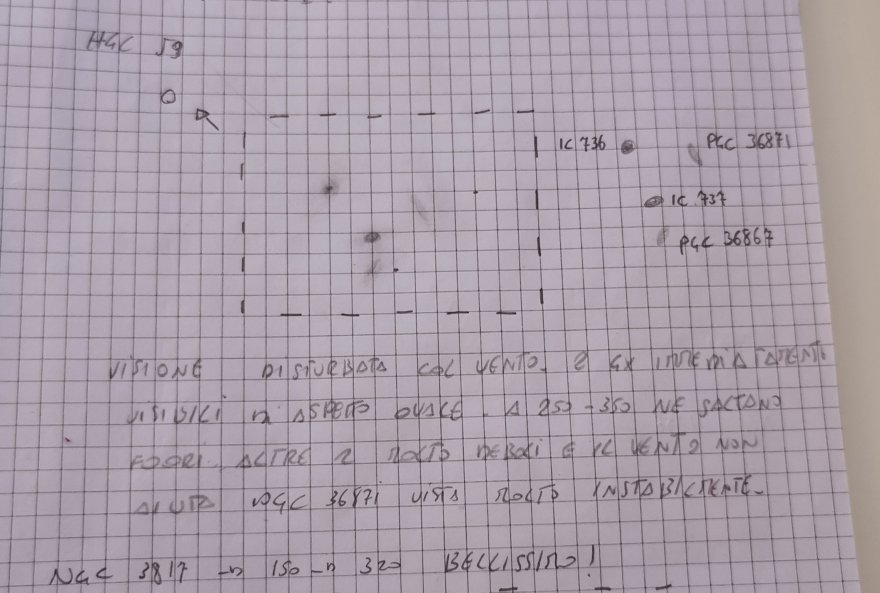 HGC 59
O
IC 736
PGC 36871
IC 737
PGC 36867
VISIONE DISTURBATA COL VENTO. 2 GX IMMEDIATAMENTE
VISIBILI DI ASPETTO OVALE. A 250-350 NE SALTANO
FUORI ALTRE 2 MOLTO DEBOLI E IL VENTO NON
AIUTA PGC 36871 VISTA MOLTO INSTABILMENTE.
NGC 3817 → 150 → 320 BELLISSIMO!